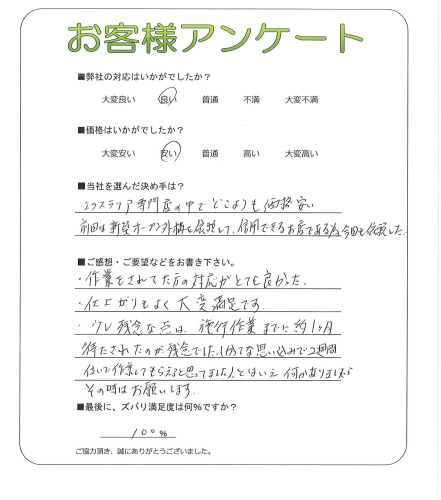 お客様アンケート
■弊社の対応はいかがでしたか?
大変良い 良い 普通 不満 大変不満
■価格はいかがでしたか?
大変安い 安い 普通 高い 大変高い
■当社を選んだ決め手は?
エクステリア専門店の中でどこよりも価格安い
前回は新築オープン外構を依頼して、信用できるお店である為今回も依頼した。
■ご感想・ご要望などをお書き下さい。
・作業をされてた方の対応がとても良かった。
・仕上がりもよく大変満足です。
・少し残念な点は、施付作業までに約1ヶ月
待たされたのが残念でした。(勝手な思い込みで2週間
位で作業してもらえると思ってました)とはいえ何かありましたら
その時はお願いします。
■最後に、ズバリ満足度は何%ですか?
100%
ご協力頂き、誠にありがとうございました。